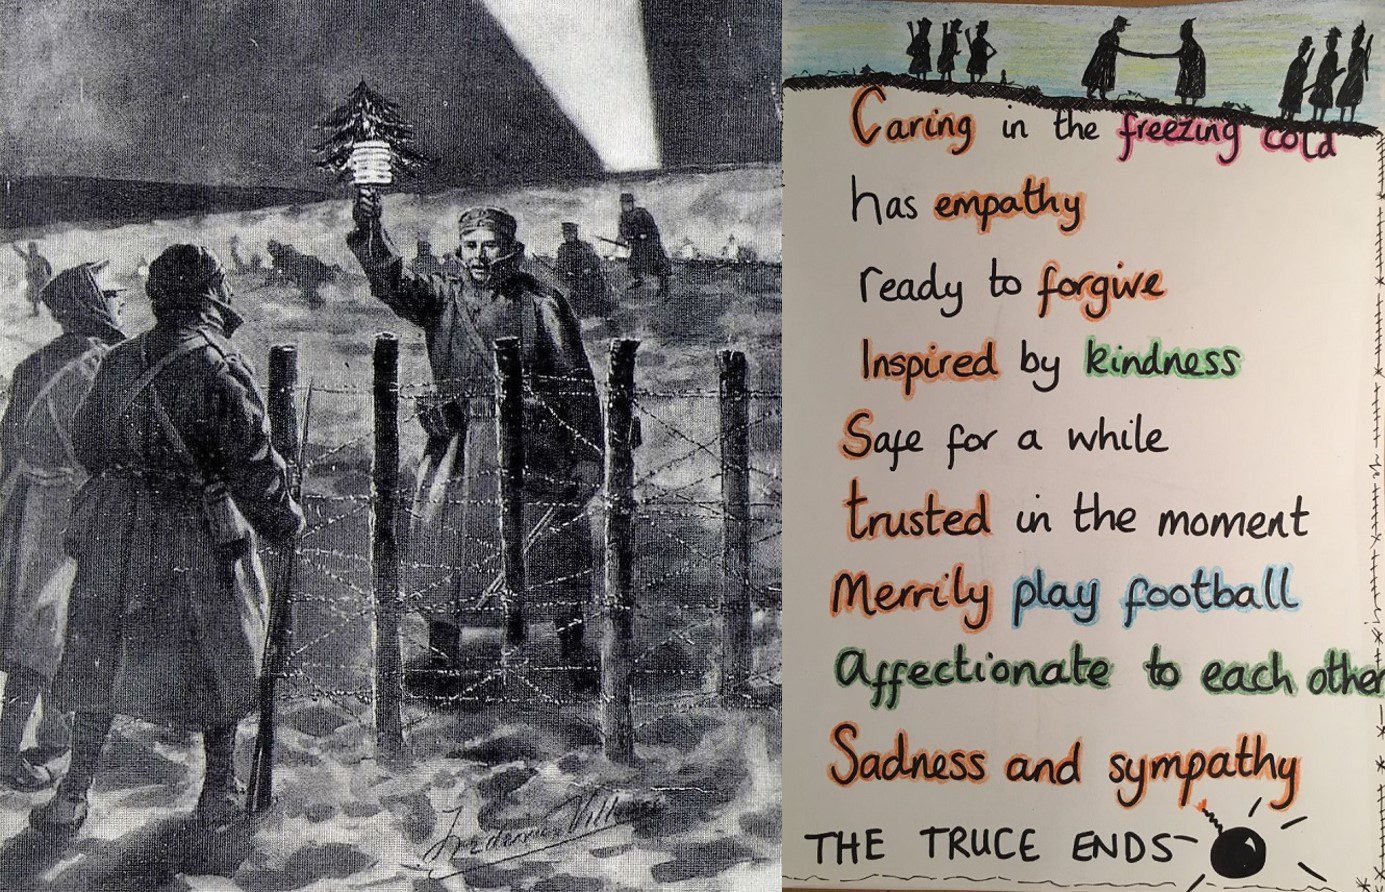 Caring in the freezing cold
has empathy
ready to forgive
Inspired by kindness
Safe for a while
trusted in the moment
Merrily play football
Affectionate to each other
Sadness and sympathy
THE TRUCE ENDS